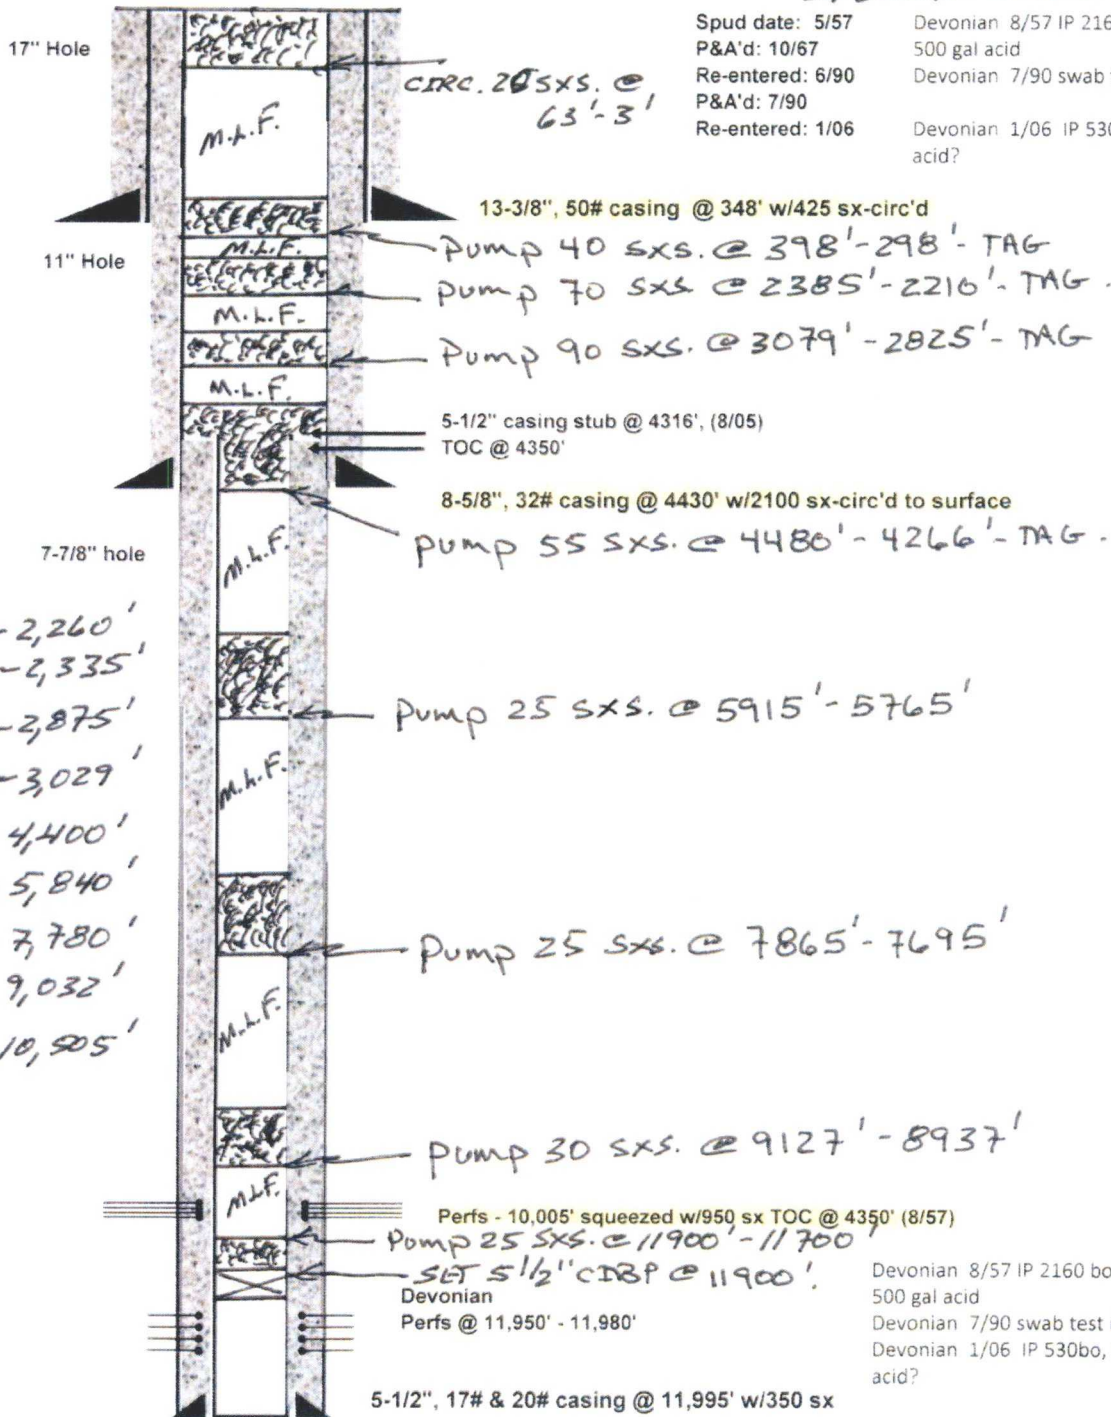 17" Hole
Spud date: 5/57
Devonian 8/57 IP 216
P&A'd: 10/67
500 gal acid
Re-entered: 6/90
Devonian 7/90 swab
P&A'd: 7/90
Re-entered: 1/06
Devonian 1/06 IP 530
acid?
CIRC. 25 SXS. @
63'-3'
M.L.F.
13-3/8", 50# casing @ 348' w/425 sx-circ'd
Pump 40 SXS. @ 398'-298'- TAG
M.L.F.
11" Hole
Pump 70 SXS @ 2385'-2210'- TAG -
M.L.F.
Pump 90 SXS. @ 3079'-2825'- TAG
M.L.F.
5-1/2" casing stub @ 4316', (8/05)
TOC @ 4350'
8-5/8", 32# casing @ 4430' w/2100 sx-circ'd to surface
Pump 55 SXS. @ 4480'-4266'- TAG -
7-7/8" hole
M.L.F.
-2,260'
-2,335'
-2,875'
-3,029'
4,400'
5,840'
7,780'
9,032'
10,505'
Pump 25 SXS. @ 5915'-5765'
M.L.F.
Pump 25 SXS. @ 7865'-7695'
M.L.F.
Pump 30 SXS. @ 9127'-8937'
M.L.F.
Perfs - 10,005' squeezed w/950 sx TOC @ 4350' (8/57)
Pump 25 SXS. @ 11900'-11700'
SET 5 1/2" CIBP @ 11900'.
Devonian
Perfs @ 11,950' - 11,980'
Devonian 8/57 IP 2160 bo
500 gal acid
Devonian 7/90 swab test
Devonian 1/06 IP 530bo,
acid?
5-1/2", 17# & 20# casing @ 11,995' w/350 sx